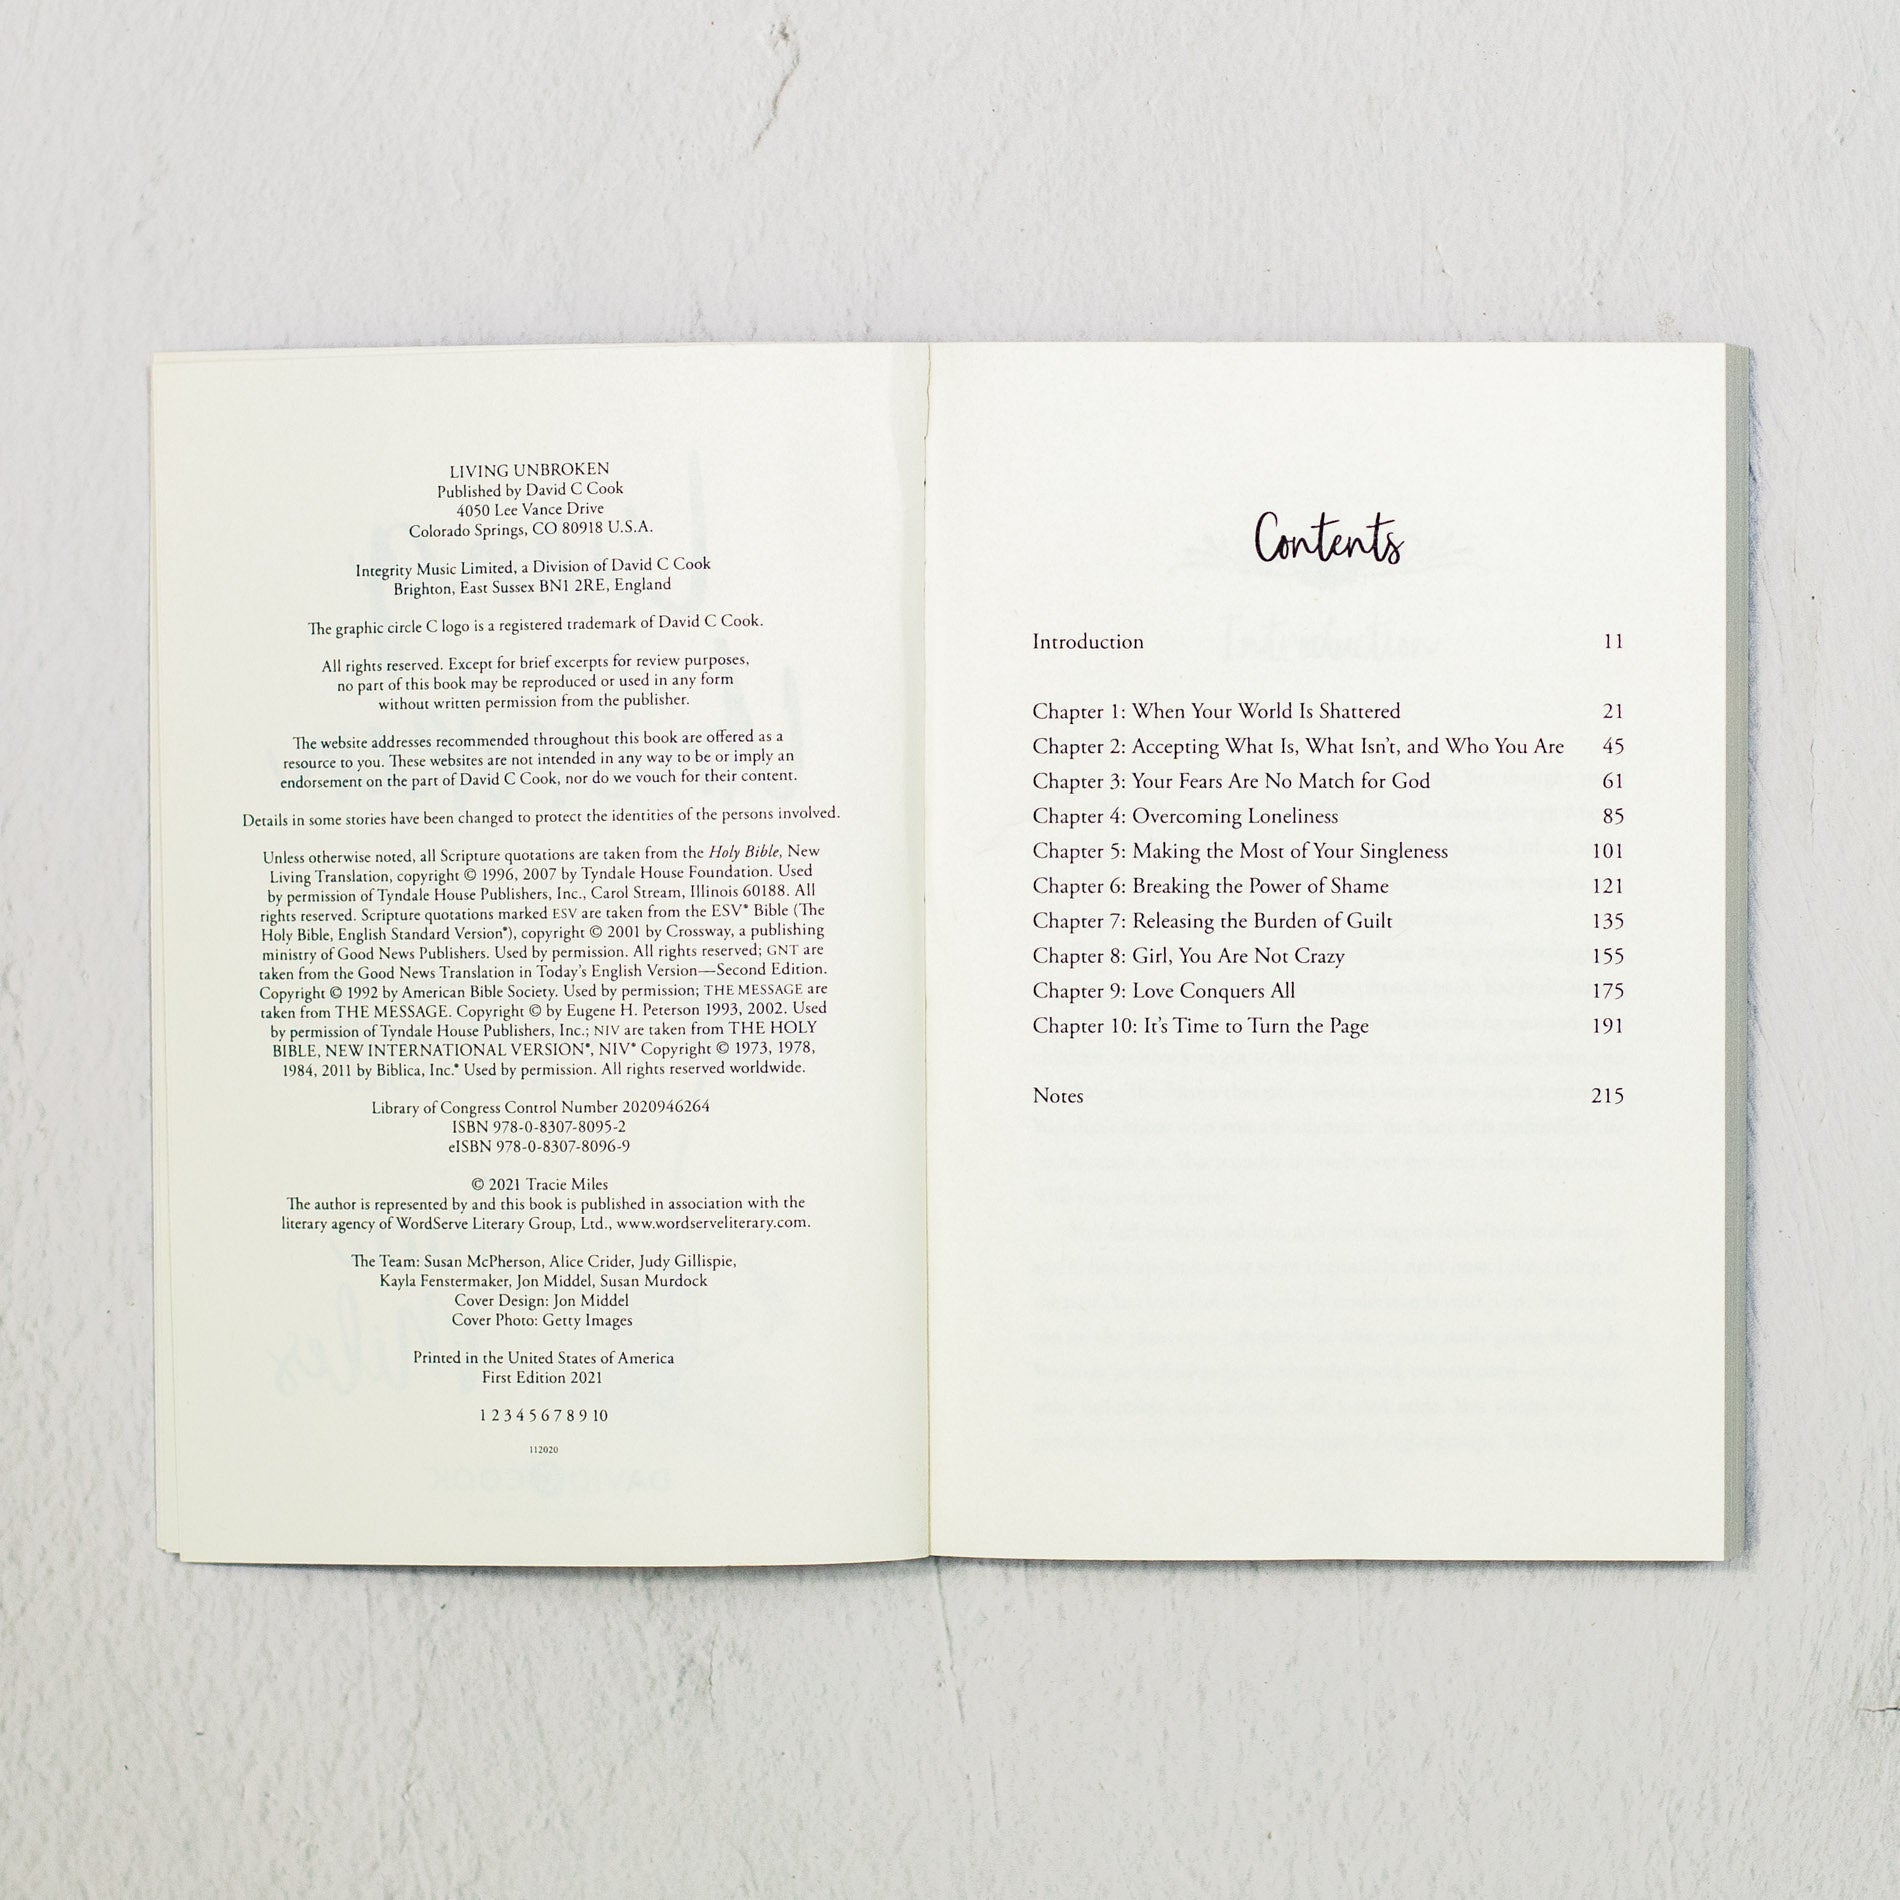 LIVING UNBROKEN
Published by David C Cook
4050 Lee Vance Drive
Colorado Springs, CO 80918 U.S.A.
Integrity Music Limited, a Division of David C Cook
Brighton, East Sussex BN1 2RE, England
The graphic circle C logo is a registered trademark of David C Cook.
All rights reserved. Except for brief excerpts for review purposes,
no part of this book may be reproduced or used in any form
without written permission from the publisher.
The website addresses recommended throughout this book are offered as a
resource to you. These websites are not intended in any way to be or imply an
endorsement on the part of David C Cook, nor do we vouch for their content.
Details in some stories have been changed to protect the identities of the persons involved.
Unless otherwise noted, all Scripture quotations are taken from the Holy Bible, New
Living Translation, copyright © 1996, 2007 by Tyndale House Foundation. Used
by permission of Tyndale House Publishers, Inc., Carol Stream, Illinois 60188. All
rights reserved. Scripture quotations marked ESV are taken from the ESV® Bible (The
Holy Bible, English Standard Version®), copyright © 2001 by Crossway, a publishing
ministry of Good News Publishers. Used by permission. All rights reserved; GNT are
taken from the Good News Translation in Today's English Version—Second Edition.
Copyright © 1992 by American Bible Society. Used by permission; THE MESSAGE are
taken from THE MESSAGE. Copyright © by Eugene H. Peterson 1993, 2002. Used
by permission of Tyndale House Publishers, Inc.; NIV are taken from THE HOLY
BIBLE, NEW INTERNATIONAL VERSION®, NIV® Copyright © 1973, 1978,
1984, 2011 by Biblica, Inc.® Used by permission. All rights reserved worldwide.
Library of Congress Control Number 2020946264
ISBN 978-0-8307-8095-2
eISBN 978-0-8307-8096-9
© 2021 Tracie Miles
The author is represented by and this book is published in association with the
literary agency of WordServe Literary Group, Ltd., www.wordserveliterary.com.
The Team: Susan McPherson, Alice Crider, Judy Gillispie,
Kayla Fenstermaker, Jon Middel, Susan Murdock
Cover Design: Jon Middel
Cover Photo: Getty Images
Printed in the United States of America
First Edition 2021
1 2 3 4 5 6 7 8 9 10
112020
Contents
Introduction 11
Chapter 1: When Your World Is Shattered 21
Chapter 2: Accepting What Is, What Isn't, and Who You Are 45
Chapter 3: Your Fears Are No Match for God 61
Chapter 4: Overcoming Loneliness 85
Chapter 5: Making the Most of Your Singleness 101
Chapter 6: Breaking the Power of Shame 121
Chapter 7: Releasing the Burden of Guilt 135
Chapter 8: Girl, You Are Not Crazy 155
Chapter 9: Love Conquers All 175
Chapter 10: It's Time to Turn the Page 191
Notes 215